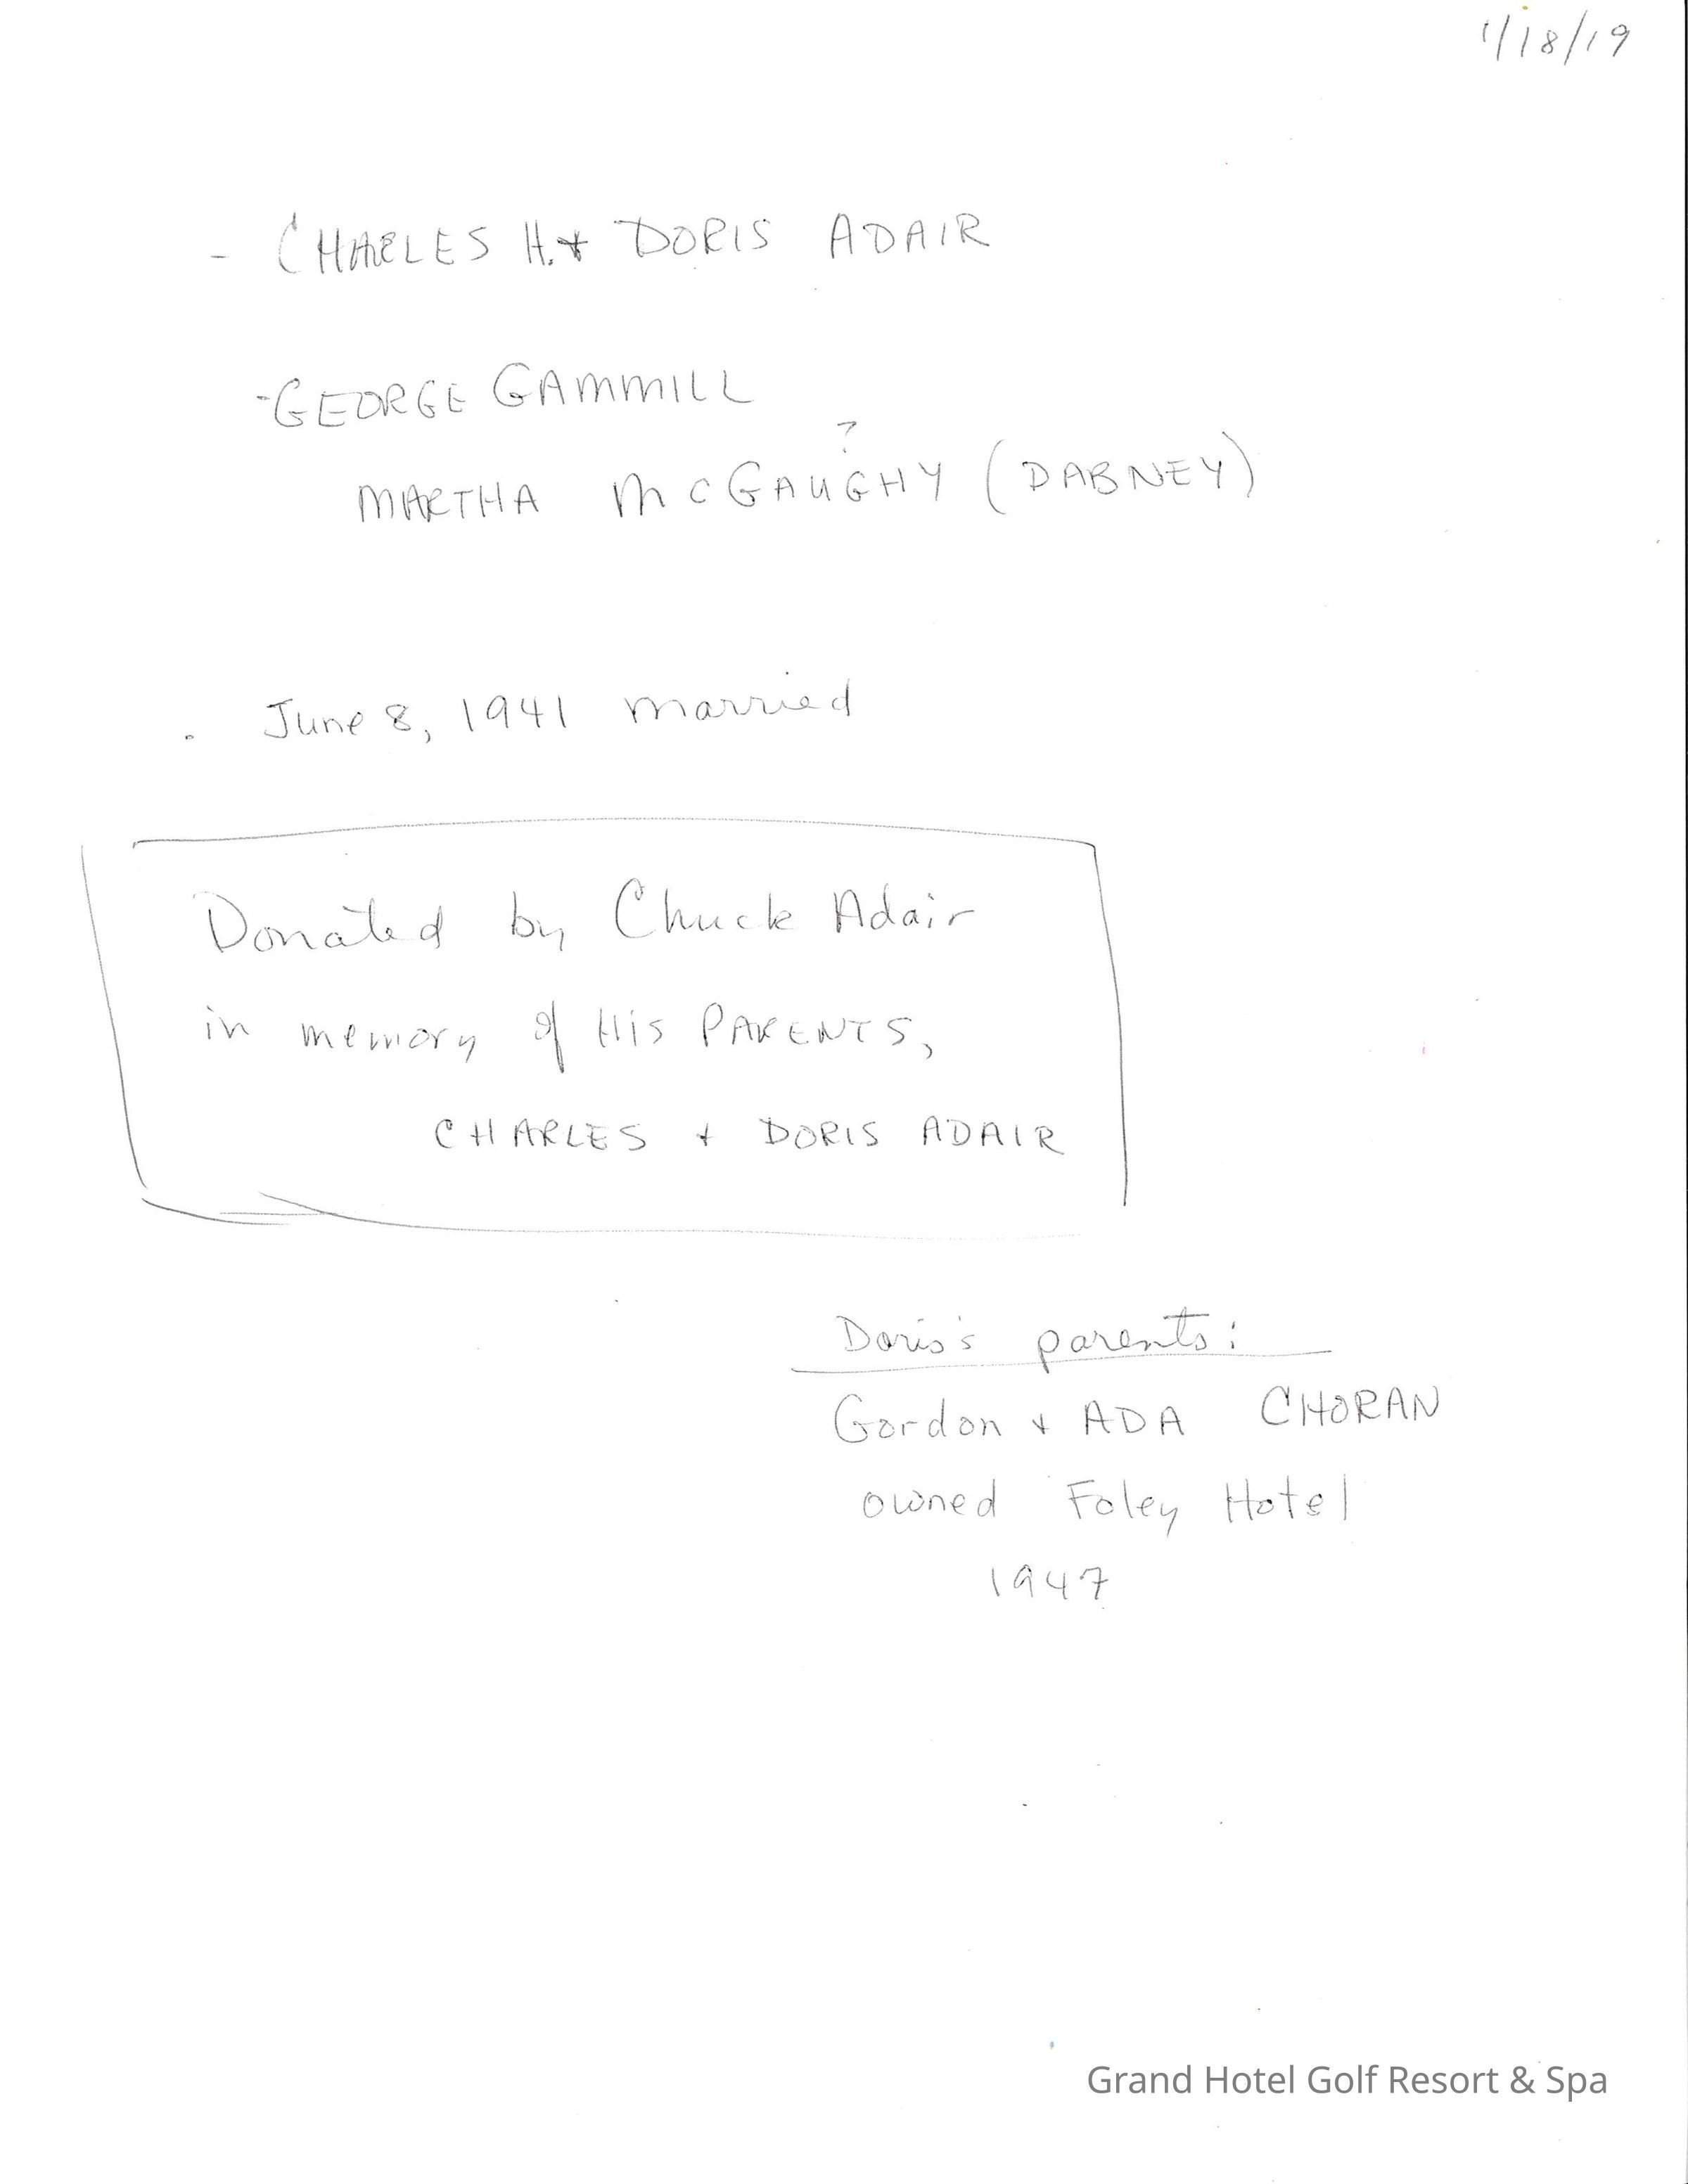 1/18/19
- CHARLES H. + DORIS ADAIR
- GEORGE GAMMILL
?
MARTHA McGAUGHY (DABNEY)
. June 8, 1941 married
Donated by Chuck Adair
in memory of HIS PARENTS,
CHARLES + DORIS ADAIR
Doris's parents:
Gordon + ADA CHORAN
owned Foley Hotel
1947
Grand Hotel Golf Resort & Spa